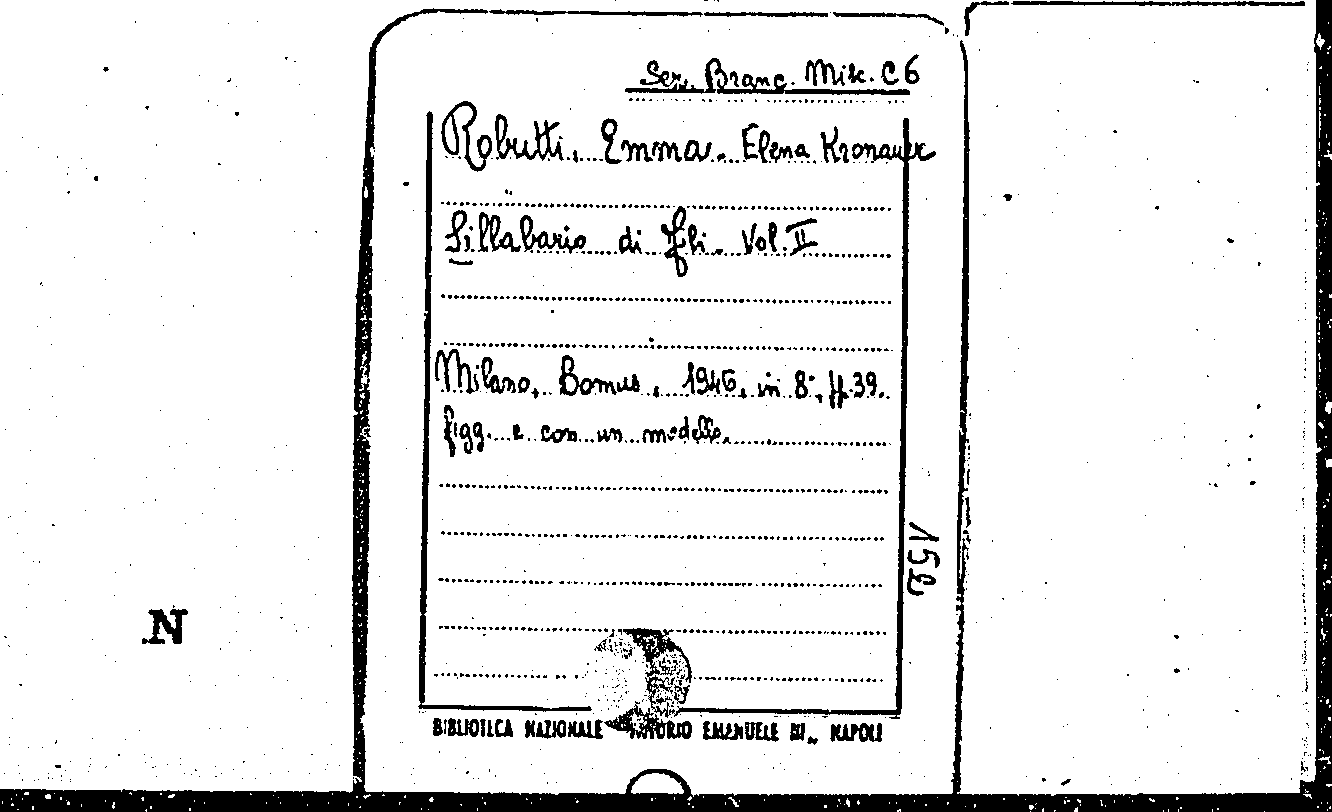 Sez. Branc. Misc. C 6
Robutti, Emma. Elena Kronauer
Sillabario di fili. Vol. II
Milano, Domus, 1946, in 8°, ff. 39.
figg. e con un modello.
152
N
BIBLIOTECA NAZIONALE EMANUELE III - NAPOLI